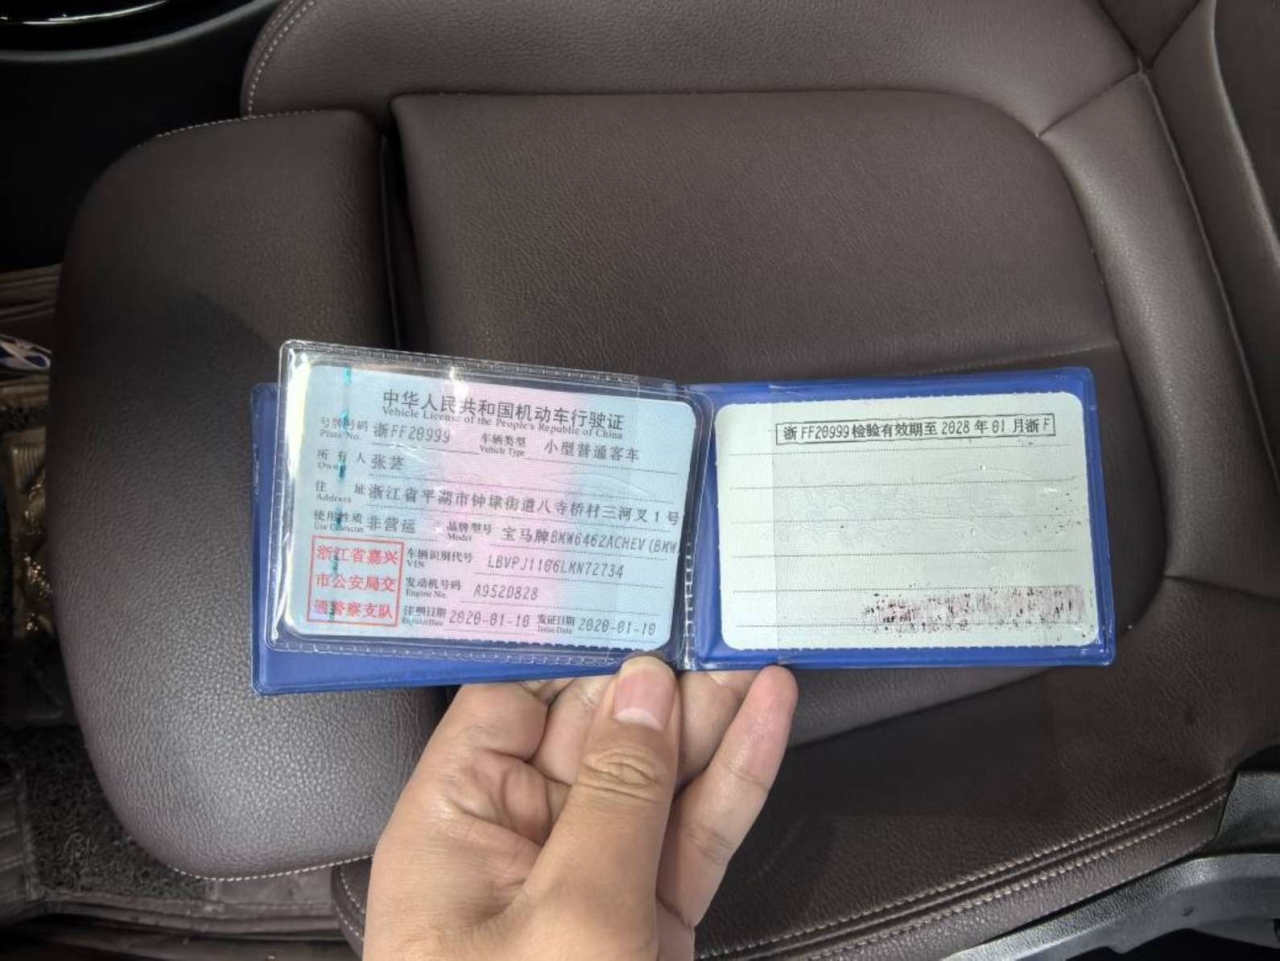 中华人民共和国机动车行驶证
Vehicle License of the People's Republic of China
号牌号码 浙FF20999 车辆类型 小型普通客车
Plate No. Vehicle Type
所有人 张芸
Owner
住址 浙江省平湖市钟埭街道八寺桥村三河叉1号
Address
使用性质 非营运 品牌型号 宝马牌BMW6462ACHEV(BMW
Use Character Model
浙江省嘉兴
市公安局交
通警察支队
车辆识别代号 LBVPJ1106LMN72734
VIN
发动机号码 A952D828
Engine No.
注册日期 2020-01-10 发证日期 2020-01-10
Register Date Issue Date
浙FF20999检验有效期至2028年01月浙F